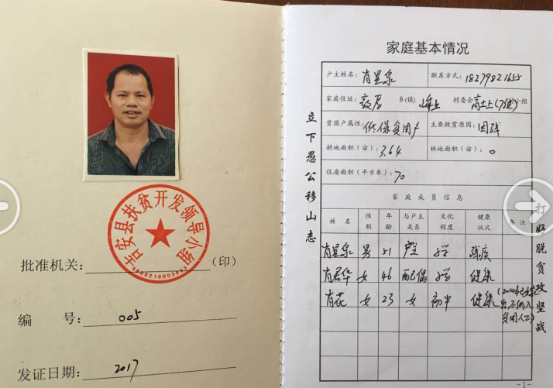 吉安县扶贫开发领导小组
批准机关：（印）
编 号：005
发证日期：2017
立下愚公移山志
家庭基本情况
户主姓名：肖星泉 联系方式：
家庭住址：敖厚 乡（镇） 峰上 村委会 组
贫困户属性：低保贫困户 主要致贫原因：因残
耕地面积（亩）：3.64 林地面积（亩）：0
住房面积（平方米）：70
家庭成员信息
姓名 性别 年龄 与户主关系 文化程度 健康状况 备注
肖星泉 男 51 户主 小学 残疾
女 46 配偶 小学 健康
肖花 女 23 女 初中 健康
打好脱贫攻坚战
-1-